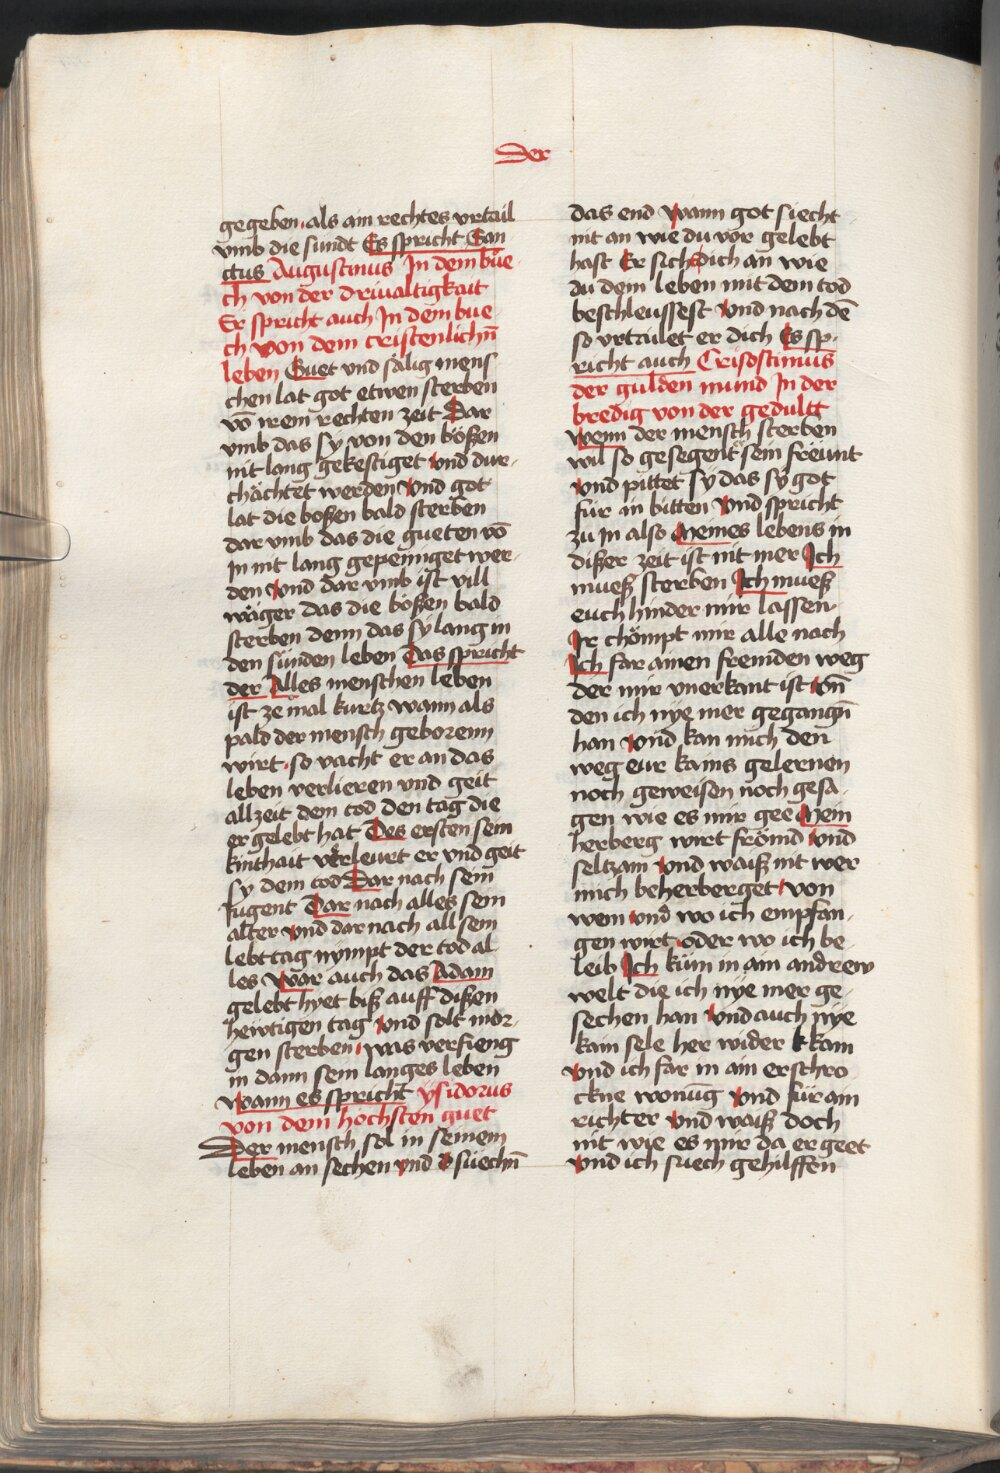 der
gegeben · als ain rechtes vrtail
vmb die sündt Es spricht San
ctus Augustinus In dem büe
ch von der driualtigkait
Er spricht auch In dem bue
ch von dem cristenlichn̄
leben Guet vnd sälig mens
chen lat got etwen sterben
vō irem rechten zeit Dar
vmb das sy von den bößen
nit lang gekestiget vnd dur
chächtet werden Vnd got
lat die boßen bald sterben
dar vmb das die gueten vō
in nit lang gepeiniget wer
den Vnd dar vmb ist vill
wäger das die bößen bald
sterben denn das sy lang in
den sünden leben Das spricht
der Alles menschen leben
ist ze mal kurtz wann als
pald der mensch geborenn
wirt · so vacht er an das
leben verlieren vnd geit
allzeit dem tod den tag die
er gelebt hat Des ersten sein
kinthait verleurt er vnd geit
sy dem tod Dar nach sein
Jugent Dar nach alles sein
alter vnd dar nach all sein
lebttag nympt der tod al
les wär auch das Adam
gelebt hyet biß auff dißen
heiwtigen tag Vnd solt mor
gen sterben · was verfieng
in dann sein langes leben
wann es spricht ysidorus
von dem hochsten guet
Der mensch sol in seinem
leben an sechen vnd süechn̄
das end wann got siecht
nit an wie du vor gelebt
hast Er sicht dich an wie
du dem leben mit dem tod
beschleussest Vnd nach dē
so vrtailet er dich Es sp
richt auch Crisostimus
der gulden mund In der
bredig von der gedultt
wenn der mensch sterben
wil so gesegent sein freünt
Vnd pittet sy das sy got
für in bitten Vnd spricht
zu In also Meines lebens in
dißer zeit ist nit mer Ich
mueß sterben Ich mueß
euch hinder mir lassen
Ir chömpt mir alle nach
Ich far ainen fremden weg
der mir vnerkant ist vn̄
den ich nye mer gegangn̄
han Vnd kan mich den
weg eur kains gelernen
noch geweisen noch gesa
gen wie es mir gee Mein
herberg wirt frömd Vnd
seltzam Vnd waiß nit wer
mich beherberget · von
wem vnd wo ich empfan
gen wirt · oder wo ich be
leib Ich küm in ain andrew
welt die ich nye mer ge
sechen han Vnd auch nye
kain sele her wider kam
Vnd ich far in ain erschro
ckne wonūg Vnd für ain
richter Vnd waiß doch
nit wie es mir da er geet
Vnd ich suech gehilffen